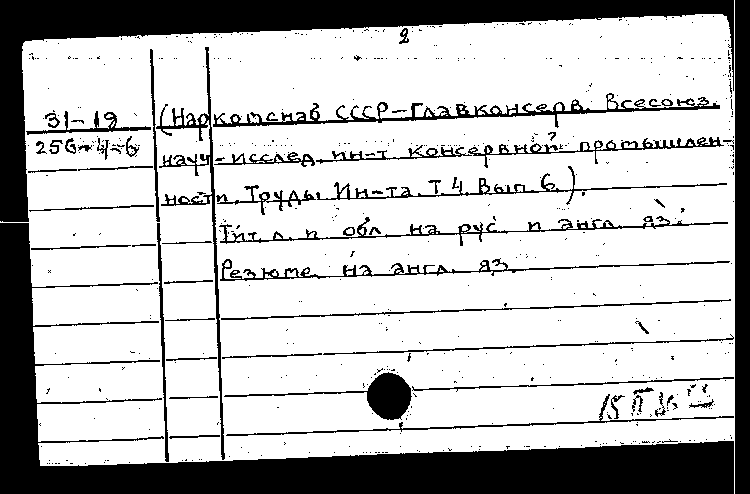 2
31-19 (Наркомснаб СССР-Главконсерв. Всесоюз.
256-4-6 науч-исслед. ин-т консервной промышлен-
ности. Труды Ин-та. Т 4. Вып. 6.).
Тит. л. и обл. на рус. и англ. яз.
Резюме на англ. яз.
15 II